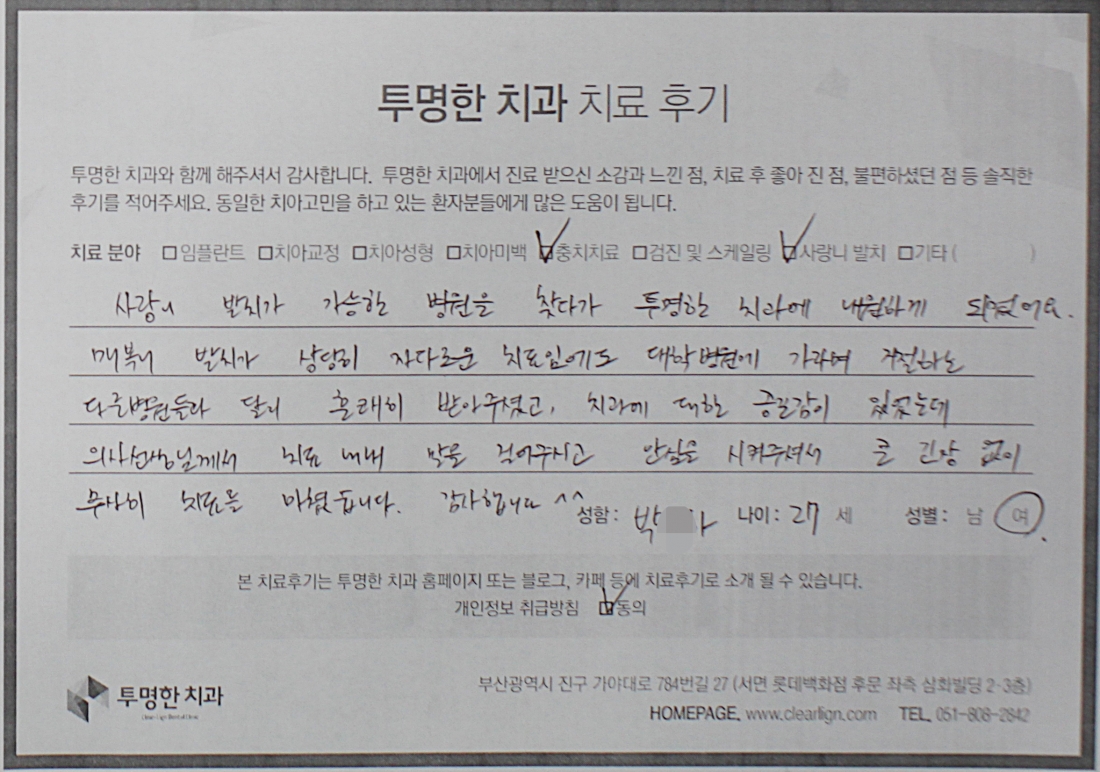 투명한 치과 치료 후기
투명한 치과와 함께 해주셔서 감사합니다. 투명한 치과에서 진료 받으신 소감과 느낀 점, 치료 후 좋아 진 점, 불편하셨던 점 등 솔직한
후기를 적어주세요. 동일한 치아고민을 하고 있는 환자분들에게 많은 도움이 됩니다.
치료 분야 □임플란트 □치아교정 □치아성형 □치아미백 ☑충치치료 □검진 및 스케일링 ☑사랑니 발치 □기타 ( )
사랑니 발치가 가능한 병원을 찾다가 투명한 치과에 내원하게 되었어요.
매복니 발치가 상당히 까다로운 치료임에도 대학병원에 가라며 거절하는
다른병원들과 달리 흔쾌히 받아주셨고, 치과에 대한 공포감이 있었는데
의사선생님께서 치료 내내 말을 걸어주시고 안심을 시켜주셔서 큰 긴장 없이
무사히 치료를 마쳤습니다. 감사합니다 ^^
성함 : 박 아 나이 : 27 세 성별 : 남 여
본 치료후기는 투명한 치과 홈페이지 또는 블로그, 카페 등에 치료후기로 소개 될 수 있습니다.
개인정보 취급방침 ☑동의
투명한 치과
부산광역시 진구 가야대로 784번길 27 (서면 롯데백화점 후문 좌측 삼화빌딩 2-3층)
HOMEPAGE. www.clearlign.com TEL. 051-808-2842